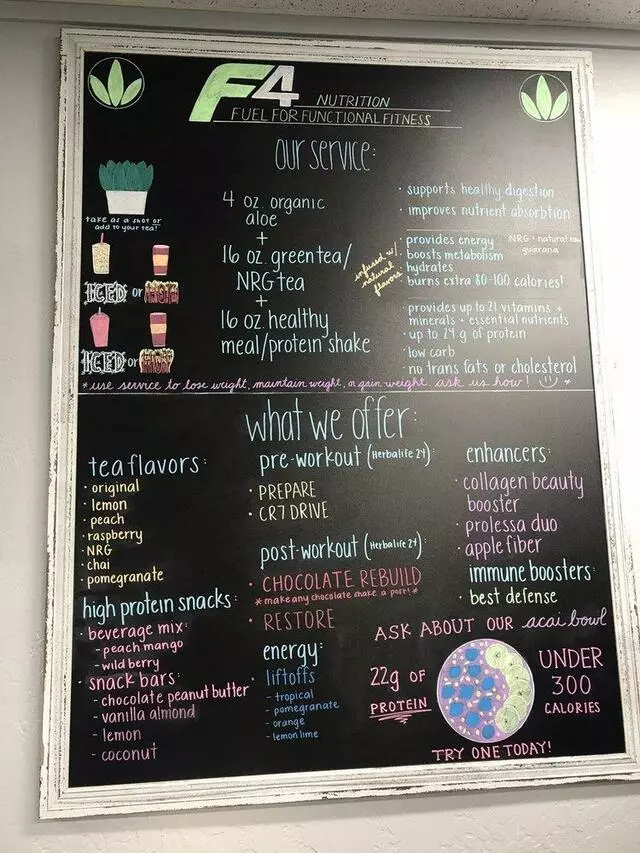 F4 NUTRITION
FUEL FOR FUNCTIONAL FITNESS
our service:
take as a shot or
add to your tea!
4 oz. organic
aloe
+
16 oz. green tea/
NRG tea
+
16 oz. healthy
meal/protein shake
ICED or HOT
ICED or HOT
· supports healthy digestion
· improves nutrient absorbtion
infused w/
natural
flavors
· provides energy
NRG = natural raw
guarana
· boosts metabolism
· hydrates
· burns extra 80-100 calories!
· provides up to 21 vitamins +
minerals + essential nutrients
· up to 24 g of protein
· low carb
· no trans fats or cholesterol
*use service to lose weight, maintain weight, or gain weight. ask us how! *
what we offer:
tea flavors:
· original
· lemon
· peach
· raspberry
· NRG
· chai
· pomegranate
high protein snacks:
· beverage mix:
- peach mango
- wild berry
· snack bars:
- chocolate peanut butter
- vanilla almond
- lemon
- coconut
pre-workout (Herbalife 24):
· PREPARE
· CR7 DRIVE
post-workout (Herbalife 24):
· CHOCOLATE REBUILD
*make any chocolate shake a post!*
· RESTORE
energy:
· liftoffs
- tropical
- pomegranate
- orange
- lemon lime
enhancers:
· collagen beauty
booster
· prolessa duo
· apple fiber
immune boosters:
· best defense
ASK ABOUT OUR acai bowl
22g OF
PROTEIN
UNDER
300
CALORIES
TRY ONE TODAY!